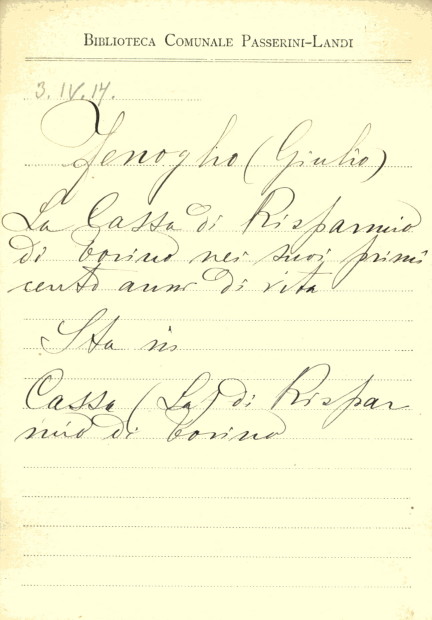 BIBLIOTECA COMUNALE PASSERINI-LANDI
3.IV.17.
Fenoglio (Giulio)
La Cassa di Risparmio
di Torino nei suoi primi
cento anni di vita
Sta in
Cassa (La) di Rispar
mio di Torino